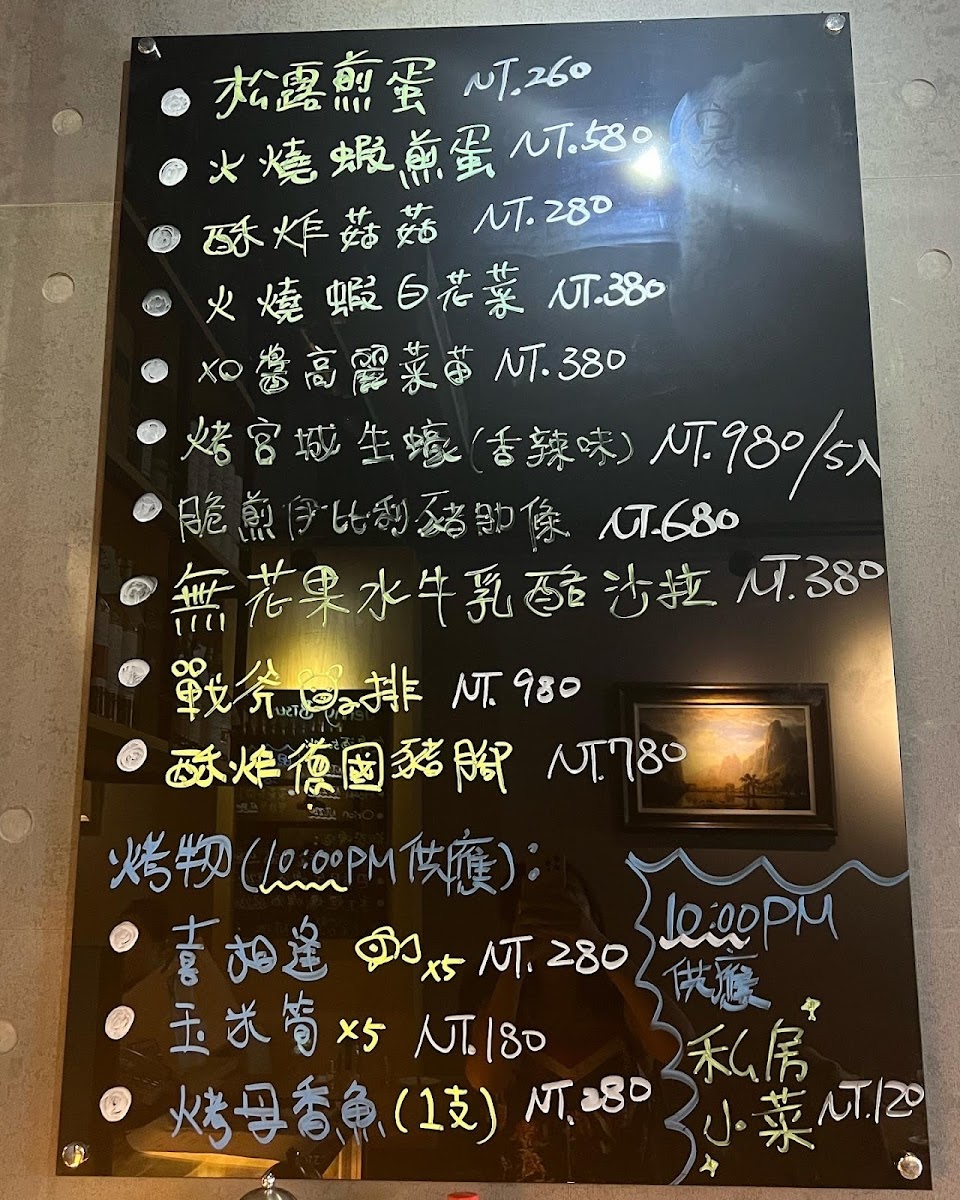 松露煎蛋 NT.260
火燒蝦煎蛋 NT.580
酥炸菇菇 NT.280
火燒蝦白花菜 NT.380
XO醬高麗菜苗 NT.380
烤宮城生蠔(香辣味) NT.980/5入
脆煎伊比利豬肋條 NT.680
無花果水牛乳酪沙拉 NT.380
戰斧排 NT.980
酥炸德國豬腳 NT.780
烤物(10:00PM供應):
喜相逢 x5 NT.280
玉米筍 x5 NT.180
烤母香魚(1支) NT.280
10:00PM
供應
私房
小菜 NT.120